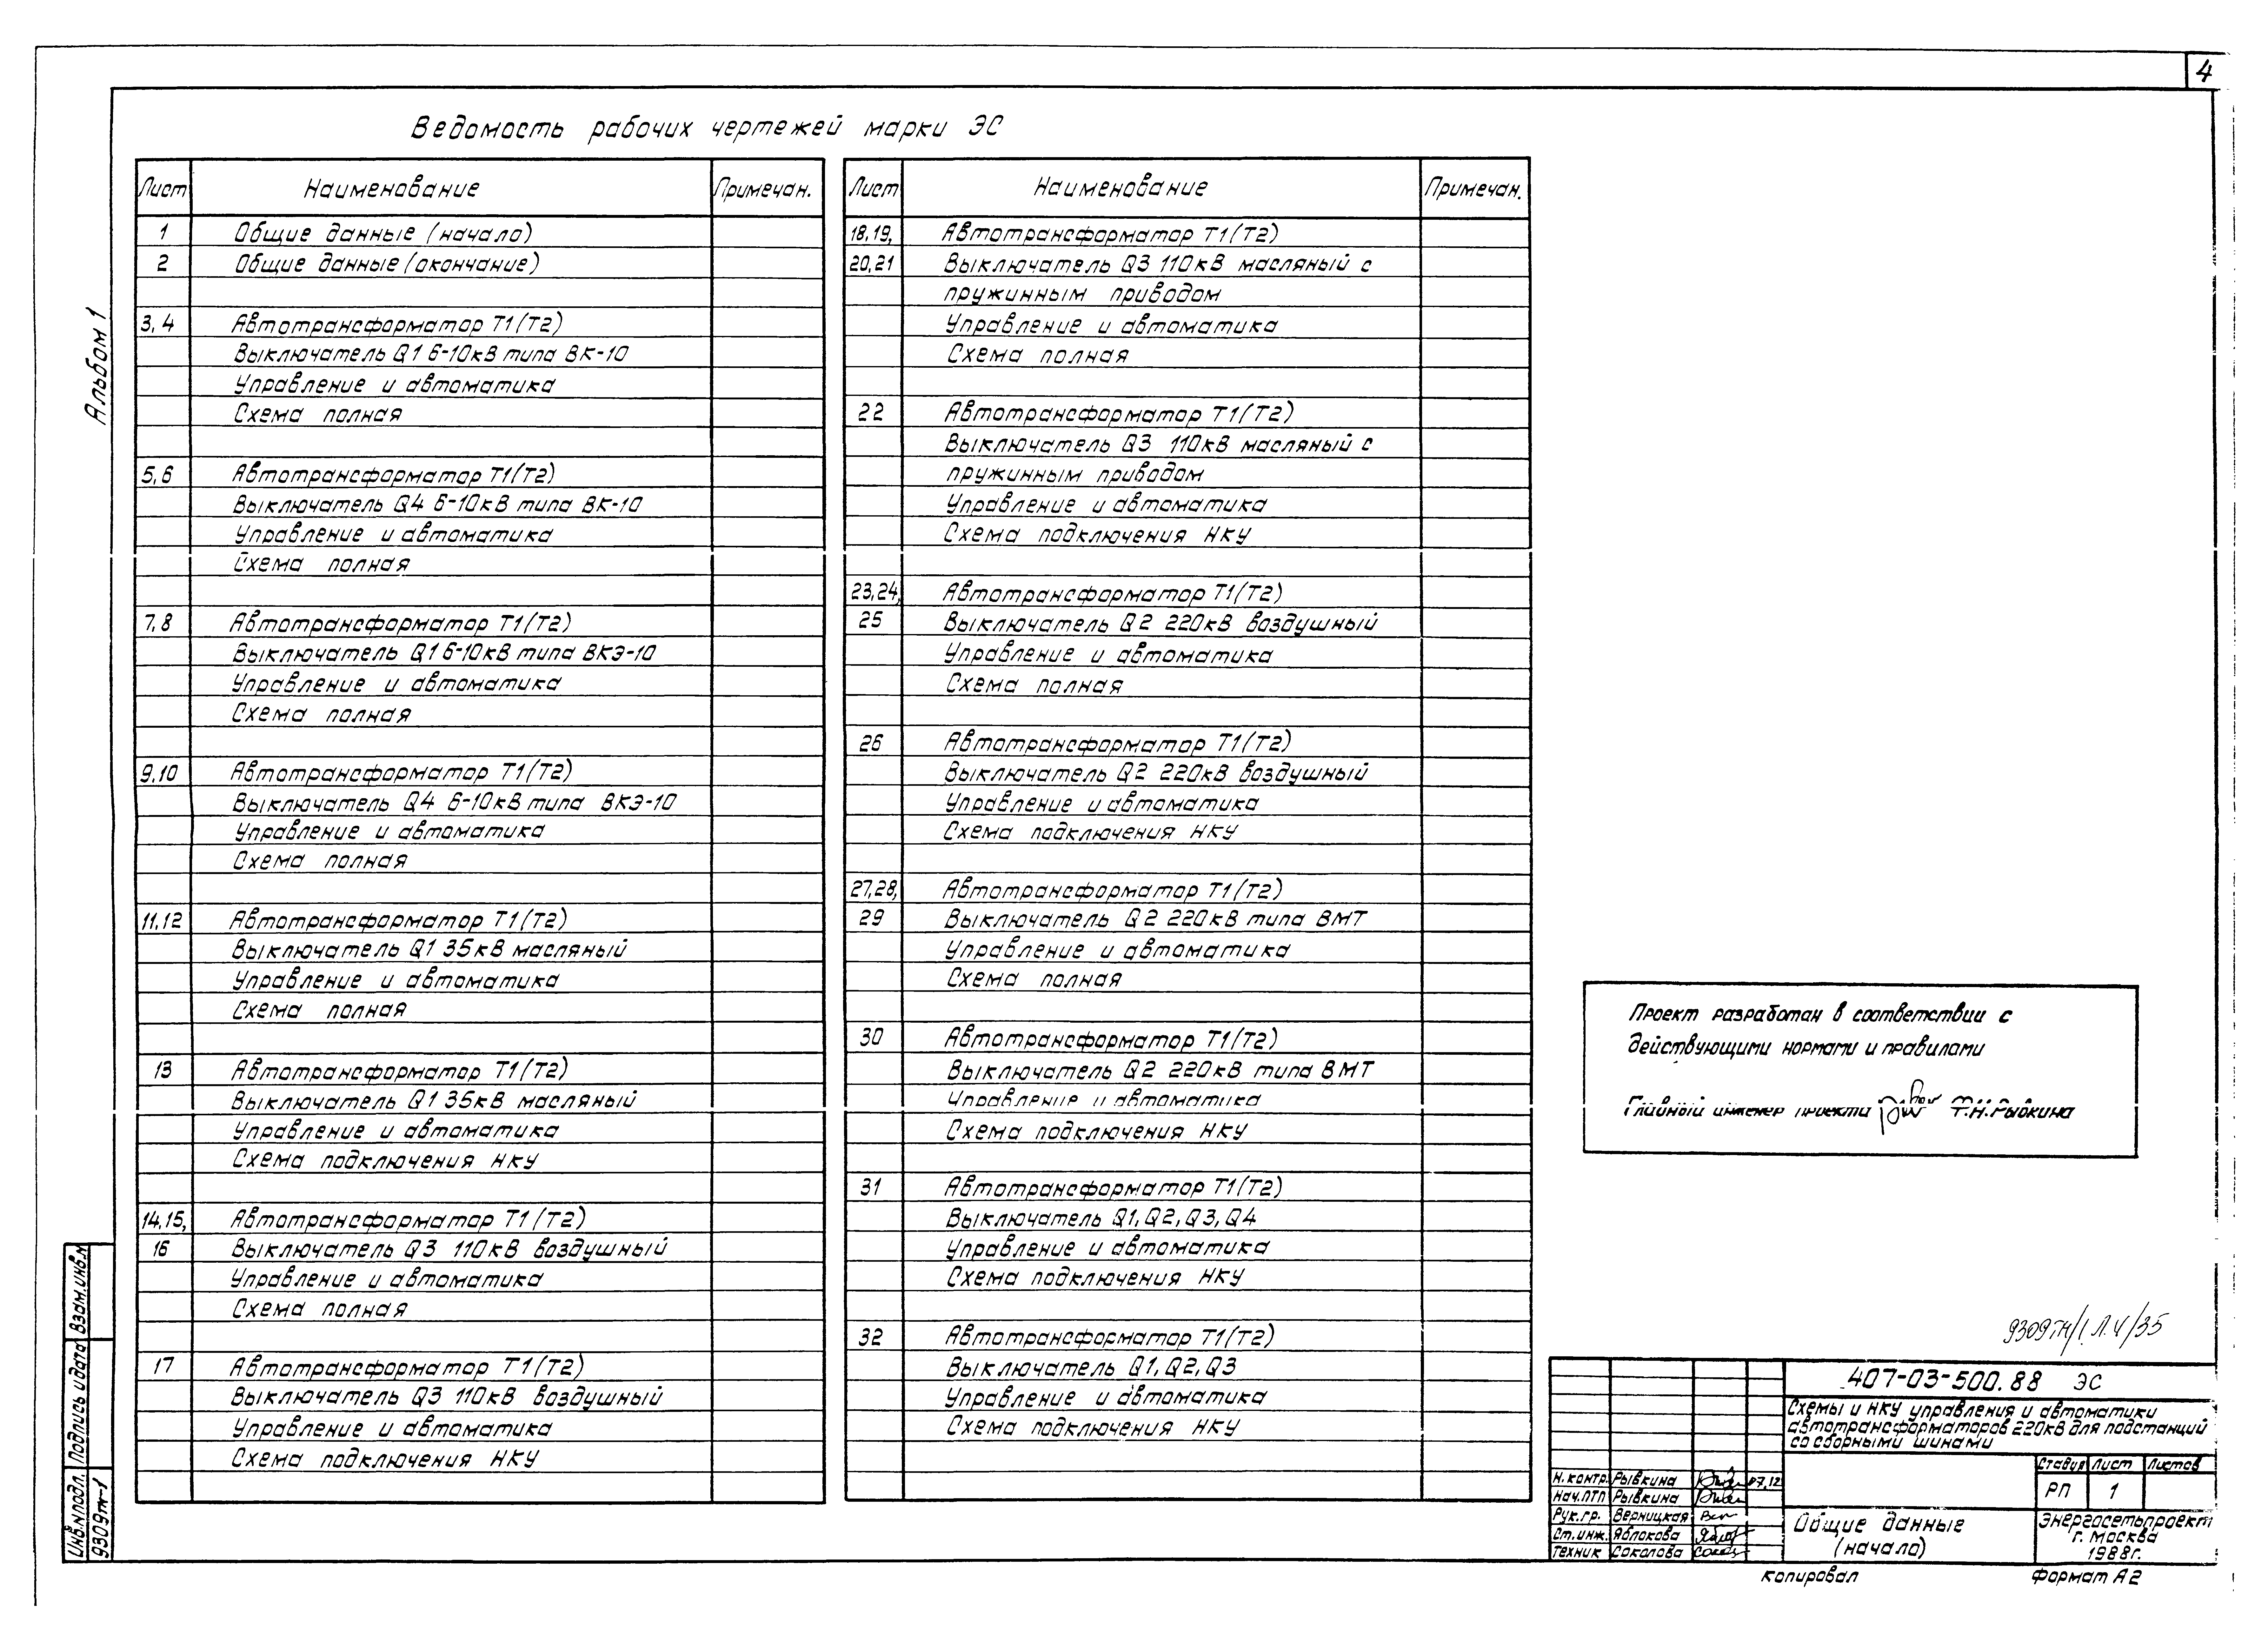 4
Альбом 1
Ведомость рабочих чертежей марки ЭС
Лист Наименование Примечан.
1 Общие данные (начало)
2 Общие данные (окончание)
3, 4 Автотрансформатор Т1(Т2)
Выключатель Q1 6-10кВ типа ВК-10
Управление и автоматика
Схема полная
5,6 Автотрансформатор Т1(Т2)
Выключатель Q4 6-10кВ типа ВК-10
Управление и автоматика
Схема полная
7,8 Автотрансформатор Т1(Т2)
Выключатель Q1 6-10кВ типа ВКЭ-10
Управление и автоматика
Схема полная
9,10 Автотрансформатор Т1(Т2)
Выключатель Q4 6-10кВ типа ВКЭ-10
Управление и автоматика
Схема полная
11,12 Автотрансформатор Т1(Т2)
Выключатель Q1 35кВ масляный
Управление и автоматика
Схема полная
13 Автотрансформатор Т1(Т2)
Выключатель Q1 35кВ масляный
Управление и автоматика
Схема подключения НКУ
14,15, Автотрансформатор Т1(Т2)
16 Выключатель Q3 110кВ воздушный
Управление и автоматика
Схема полная
17 Автотрансформатор Т1(Т2)
Выключатель Q3 110кВ воздушный
Управление и автоматика
Схема подключения НКУ
Лист Наименование Примечан.
18,19, Автотрансформатор Т1(Т2)
20,21 Выключатель Q3 110кВ масляный с
пружинным приводом
Управление и автоматика
Схема полная
22 Автотрансформатор Т1(Т2)
Выключатель Q3 110кВ масляный с
пружинным приводом
Управление и автоматика
Схема подключения НКУ
23,24, Автотрансформатор Т1(Т2)
25 Выключатель Q2 220кВ воздушный
Управление и автоматика
Схема полная
26 Автотрансформатор Т1(Т2)
Выключатель Q2 220кВ воздушный
Управление и автоматика
Схема подключения НКУ
27,28, Автотрансформатор Т1(Т2)
29 Выключатель Q2 220кВ типа ВМТ
Управление и автоматика
Схема полная
30 Автотрансформатор Т1(Т2)
Выключатель Q2 220кВ типа ВМТ
Управление и автоматика
Схема подключения НКУ
31 Автотрансформатор Т1(Т2)
Выключатель Q1, Q2, Q3, Q4
Управление и автоматика
Схема подключения НКУ
32 Автотрансформатор Т1(Т2)
Выключатель Q1, Q2, Q3
Управление и автоматика
Схема подключения НКУ
Проект разработан в соответствии с
действующими нормами и правилами
Главный инженер проекта Т.Н.Рывкина
9309тм/1 Л.4/35
407-03-500.88 ЭС
Схемы и НКУ управления и автоматики
автотрансформаторов 220кВ для подстанций
со сборными шинами
Стадия Лист Листов
РП 1
Н.контр. Рывкина
Нач.ПТП Рывкина
Рук.гр. Верницкая
Ст.инж. Яблокова
Техник Соколова
Общие данные
(начало)
Энергосетьпроект
г. Москва
1988г.
Копировал Формат А2
Взам.инв.№
Подпись и дата
Инв.№подл.
9309тм-1